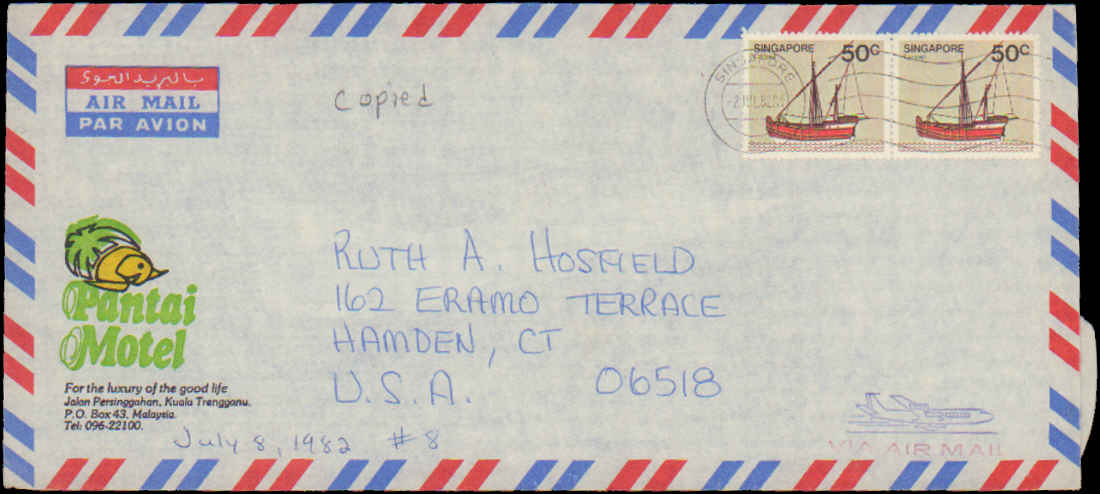 بالبريد الجوي
AIR MAIL
PAR AVION
Copied
SINGAPORE 50C
SINGAPORE 50C
SINGAPORE
RUTH A. HOSFIELD
162 ERAMO TERRACE
HAMDEN, CT
U.S.A. 06518
Pantai
Motel
For the luxury of the good life
Jalan Persinggahan, Kuala Trengganu.
P.O. Box 43, Malaysia.
Tel: 096-22100.
July 8, 1982 #8
VIA AIR MAIL